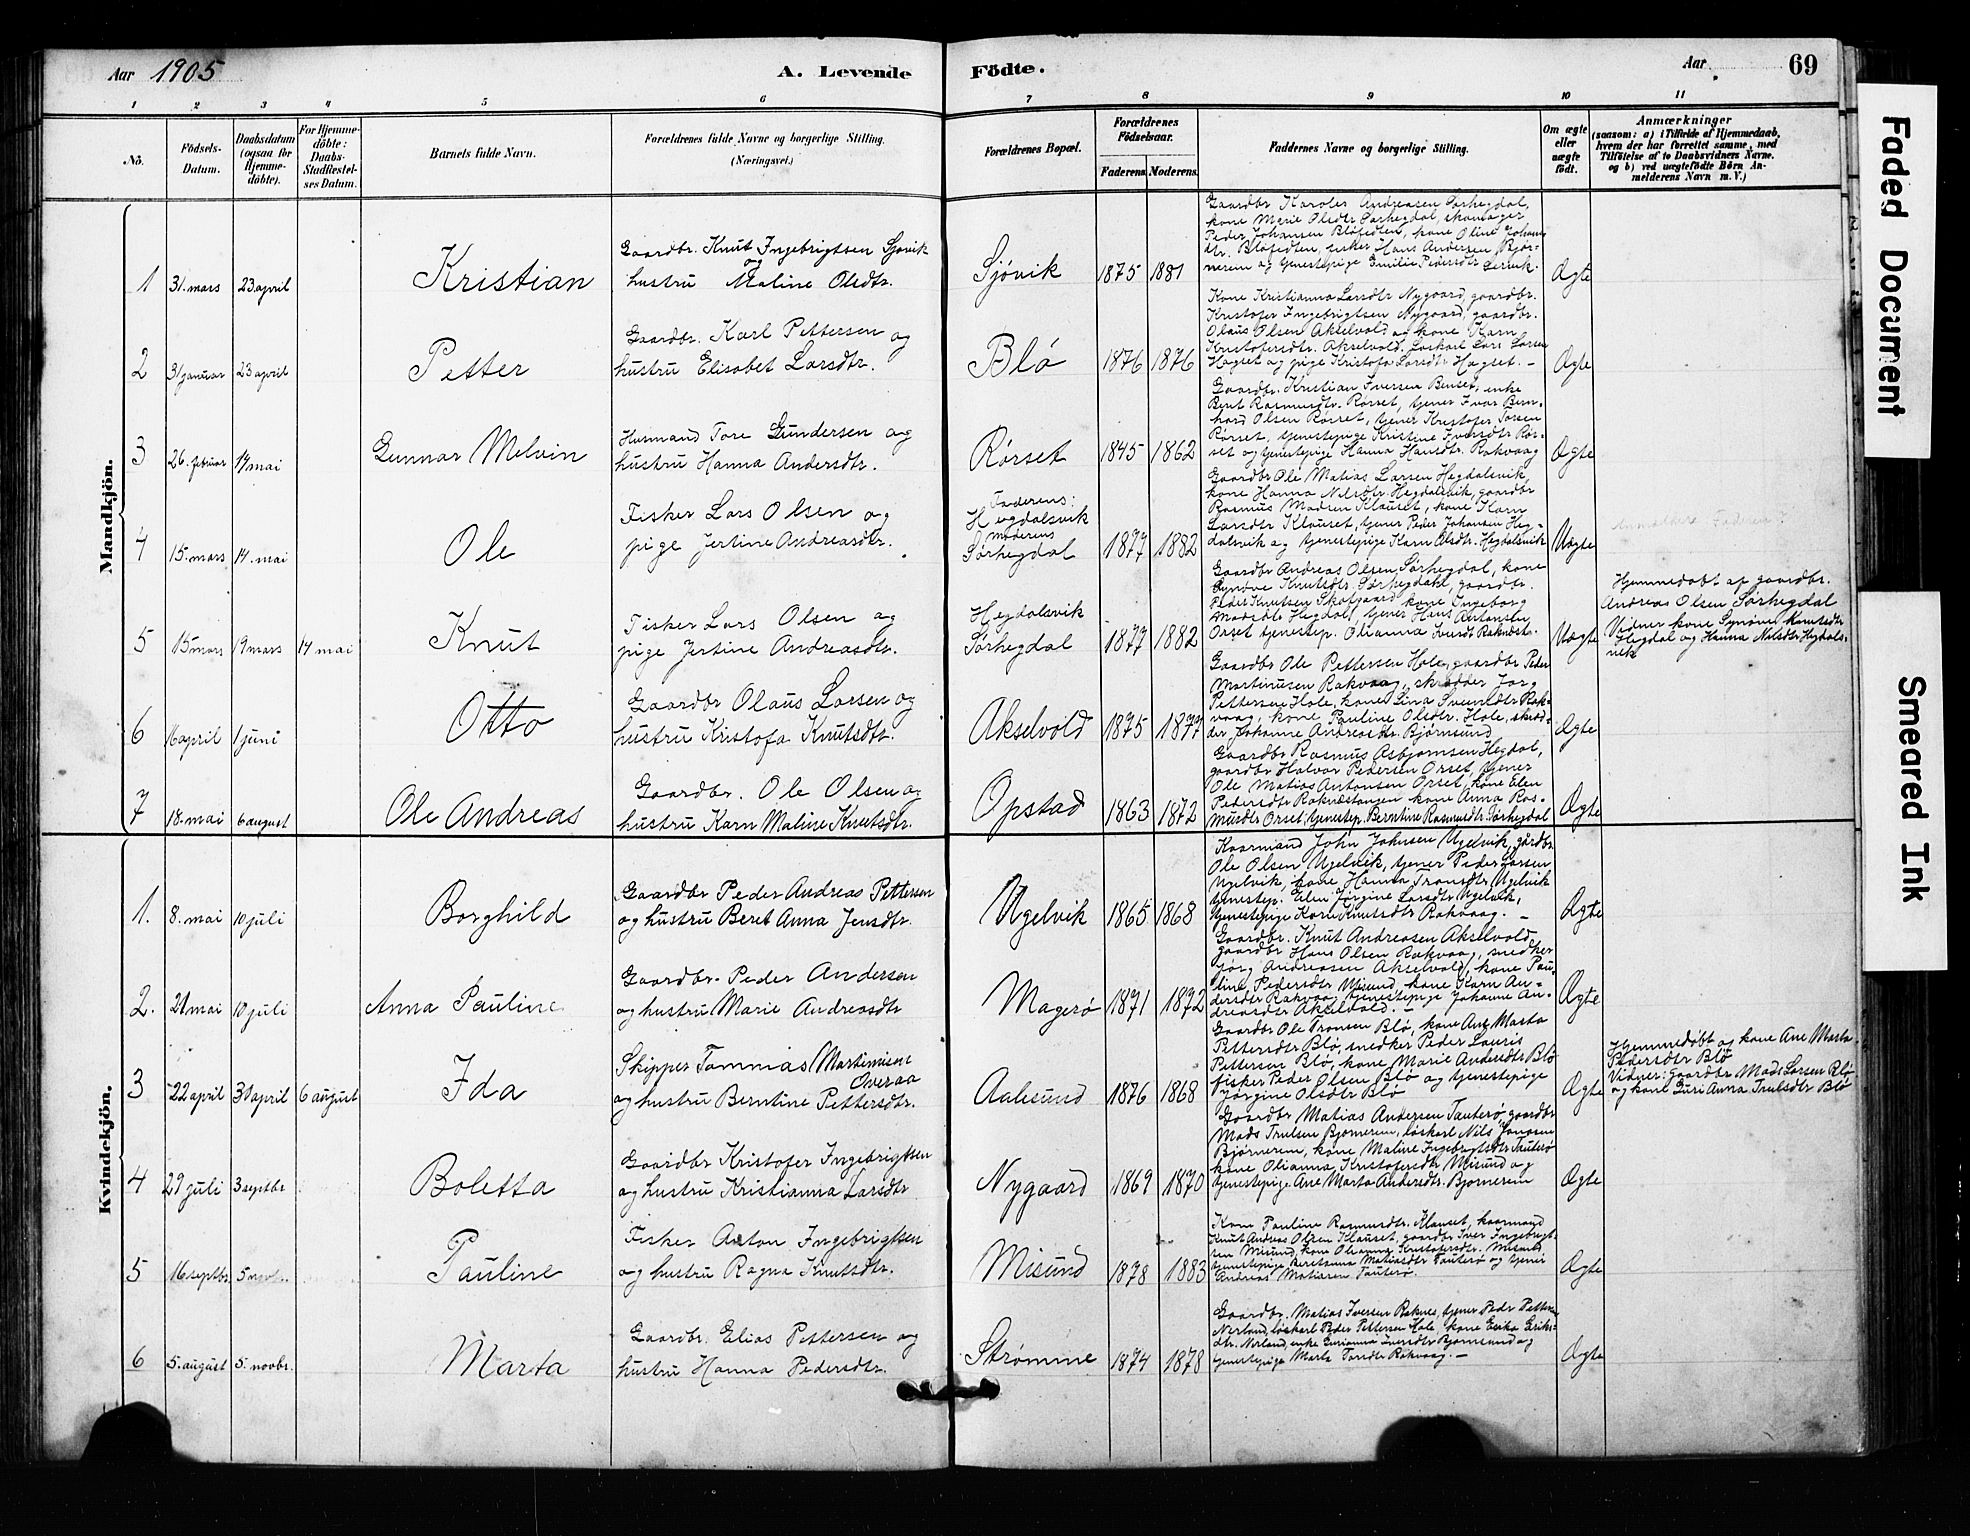 Aar 1905
A. Levende Födte.
Aar
69
1 2 3 4 5 6 7 8 9 10 11
Nö.
Födsels-Datum.
Daabsdatum (ogsaa for Hjemme-döbte).
For Hjemme-döbte: Daabs-Stadfestel-ses Datum.
Barnets fulde Navn.
Forældrenes fulde Navne og borgerlige Stilling. (Næringsvei.)
Forældrenes Bopæl.
Forældrenes Födselsaar.
Faderens Moderens
Faddernes Navne og borgerlige Stilling.
Om ægte eller uægte födt.
Anmærkninger
(saasom: a) i Tilfælde af Hjemmedaab, hvem der har forrettet samme, med Tilföielse af to Daabsvidners Navne. og b) ved uægtefödte Börn An-melderens Navn m. V.)
Mandkjön.
1 31. mars 23 april Kristian
Gaardbr. Knut Ingebrigtsen Sjøvik og
hustru Maline Olsdtr.
Sjøvik 1875 1881
Gaardbr Karoles Andreasen Sørhegdal,
kone Marie Olsdtr Sørhegdal, skomager
Peder Johansen Bløfedten, kone Oline Johans
dtr. Bløfedten, fisker Hans Andersen Bjør-
nerem og tjenestepige Emilie Pedersdtr
Ægte
2 31 januar 23 april Petter
Gaardbr. Karl Pettersen og
hustru Elisabet Larsdtr.
Blø 1876 1876
Kone Kristianna Larsdtr Nygaard, gaardbr.
Kristofer Ingebrigtsen Nygaard, gaardbr.
Olaus Olsen Akselvold og kone Karn
Kristofersdtr. Akselvold. Løskarl Lars Larsen
Hagset og pige Kristofa Larsdtr Hagset. –
Ægte
3 26. februar 14 mai Gunnar Melvin
Husmand Tore Gundersen og
hustru Hanna Andersdtr.
Rørset 1845 1862
Gaardbr. Kristian Iversen Benset, enke
Berit Rasmusdtr. Rørset, tjener Ivar Bern-
hard Olsen Rørset, tjener Kristofer Toresen
Rørset, tjenestepige Kristine Iversdtr Rør-
set og tjenestepige Hanna Hansdtr. Rakvaag
Ægte
4 15. mars 14. mai Ole
Fisker Lars Olsen og
pige Jertine Andreasdtr.
Faderens:
Hegdalsvik
moderens
Sørhegdal 1877 1882
Gaardbr Ole Matias Larsen Hegdalsvik
kone Hanna Nilsdtr. Hegdalsvik, gaardbr
Rasmus Madsen Klauset, kone Karn
Larsdtr Klauset, tjener Peder Johansen Heg-
dalsvik og tjenestepige Karn Olsdtr. Hegdalsvik
Uægte
5 15 mars 19 mars 14 mai Knut
Fisker Lars Olsen og
pige Jertine Andreasdtr.
Hegdalsvik
Sørhegdal 1877 1882
Gaardbr Andreas Olsen Sørhegdal, kone
Synøve Knutsdtr. Sørhegdal, gaardbr.
Peder Knutsen Skotgaard, kone Ingeborg
Madsdtr Hegdal, tjener Hans Antonsen
Orset tjenestep. Olianna Iversdt Raknestr.
Uægte
Hjemmedøbt af gaardbr.
Andreas Olsen Sørhegdal
Vidner kone Synøve Knutsdtr
Hegdal og Hanna Nilsdtr Hegdals-
vik
6 16 april 1 juni Otto
Gaardbr Olaus Larsen og
hustru Kristofa Knutsdtr.
Akselvold 1875 1877
Gaardbr Ole Pettersen Hole, gaardbr Peder
Martinusen Rakvaag, skrædder Jørg
Pettersen Hole, kone Lina Svendsdtr Rak-
vaag, kone Pauline Olsdtr. Hole, skræd-
der Johanne Andreasdtr. Bjørnsund
Ægte
7 18. mai 6 august Ole Andreas
Gaardbr. Ole Olsen og
hustru Karn Maline Knutsdtr.
Opstad 1863 1872
Gaardbr Rasmus Asbjørnsen Hegdal,
gaardbr Halvor Pedersen Orset, tjener
Ole Matias Antonsen Orset, kone Elen
Pedersdtr Raknestangen kone Anna Ras-
musdtr Orset, tjenestep. Berntine Rasmusdtr. Sørhegdal
Ægte
Kvindekjön.
1. 8. mai 10 juli Borghild
Gaardbr Peder Andreas Pettersen
og hustru Beret Anna Jensdtr.
Ugelvik 1865 1868
Kaarmand John Johnsen Ugelvik, gårdbr
Ole Olsen Ugelvik, tjener Peder Larsen
Ugelvik, kone Hanna Tronsdtr Ugelvik
tjenestep. Elen Jørgine Larsdtr Ugelvik,
tjenestepige Karn Knutsdtr Rakvaag. –
Ægte
2. 21 mai 10 juli Anna Pauline
Gaardbr. Peder Andersen
og hustru Marie Andreasdtr
Magerø 1871 1872
Gaardbr. Knut Andreasen Akselvold,
gaardbr Hans Olsen Rakvaag, snedker
Jørg Andreasen Akselvold, kone Pau-
line Pedersdtr Misund kone Karn An-
dersdtr Rakvaag tjenestepige Johanne An-
dreasdtr Akselvold. –
Ægte
3 22 april 30 april 6 august Ida
Skipper Tommas Martinusen
Overaa
og hustru Berntine Pettersdtr.
Aalesund 1876 1868
Gaardbr Ole Tronsen Blø, kone Ane Marta
Pettersdtr Blø, snedker Peder Lauris
Pettersen Blø, kone Marie Andersdtr Blø
fisker Peder Olsen Blø og tjenestepige
Jørgine Olsdtr Blø
Ægte
Hjemmedøbt af kone Ane Marta
Pedersdtr Blø
Vidner: Gaardbr Mads Larsen Blø
og kone Guri Anna Trulsdtr Blø
4 29 juli 3 septbr Boletta
Gaardbr Kristofer Ingebrigtsen
og hustru Kristianna Larsdtr
Nygaard 1869 1870
Gaardbr Matias Andersen Tauterø, gaardbr
Mads Trulsen Bjørnerem, løskarl Nils Jonasen
Bjørnerem, kone Maline Ingebrigtsdtr Tauterø
kone Olianna Kristofersdtr Misund og
tjenestepige Ane Marta Andersdtr. Bjørnerem
Ægte
5 16 septbr. 5 novbr. Pauline
Fisker Anton Ingebrigtsen
og hustru Ragna Knutsdtr.
Misund 1878 1883
Kone Pauline Rasmusdtr. Klauset, kaarmand
Knut Andreas Olsen Klauset, gaardbr Iver Ingebrigt-
sen Misund, kone Olianna Kristofersdtr. Misund
tjenestepige Beretanna Matiasdtr Tauterø og tjener
Andreas Matiasen Tauterø.
Ægte
6 5. august 5. novbr. Marta
Gaardbr. Elias Pettersen og
hustru Hanna Pedersdtr.
Strømme 1874 1878
Gaardbr. Matias Iversen Raknes, tjener Peder Petters
Nerland, løskarl Peder Pettersen Hole, kone Erika Eriks-
dtr. Nerland, enke Gurianna Iversdtr Bjørnsund og
tjenestepige Marta Toresdtr Rakvaag. –
Ægte
Faded Document
Smeared Ink